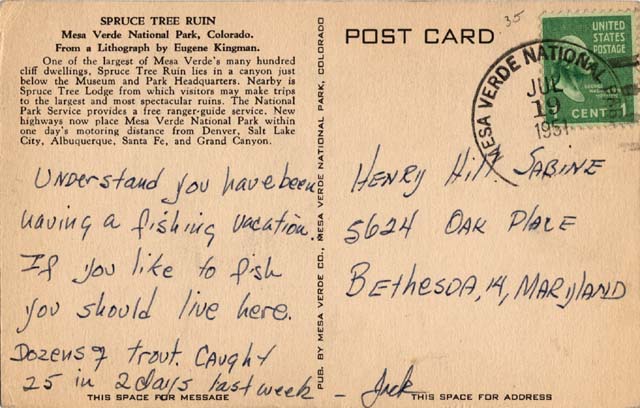 SPRUCE TREE RUIN
Mesa Verde National Park, Colorado.
From a Lithograph by Eugene Kingman.
One of the largest of Mesa Verde's many hundred
cliff dwellings, Spruce Tree Ruin lies in a canyon just
below the Museum and Park Headquarters. Nearby is
Spruce Tree Lodge from which visitors may make trips
to the largest and most spectacular ruins. The National
Park Service provides a free ranger-guide service. New
highways now place Mesa Verde National Park within
one day's motoring distance from Denver, Salt Lake
City, Albuquerque, Santa Fe, and Grand Canyon.
Understand you have been
having a fishing vacation.
If you like to fish
you should live here.
Dozens of trout. Caught
25 in 2 days last week – Jack
THIS SPACE FOR MESSAGE
PUB. BY MESA VERDE CO., MESA VERDE NATIONAL PARK, COLORADO
POST CARD
35
UNITED
STATES
POSTAGE
1 CENT
MESA VERDE NATIONAL PARK
JUL
19
195
HENRY Hill SABINE
5624 OAK PLACE
BETHESDA, 14, MARYLAND
THIS SPACE FOR ADDRESS